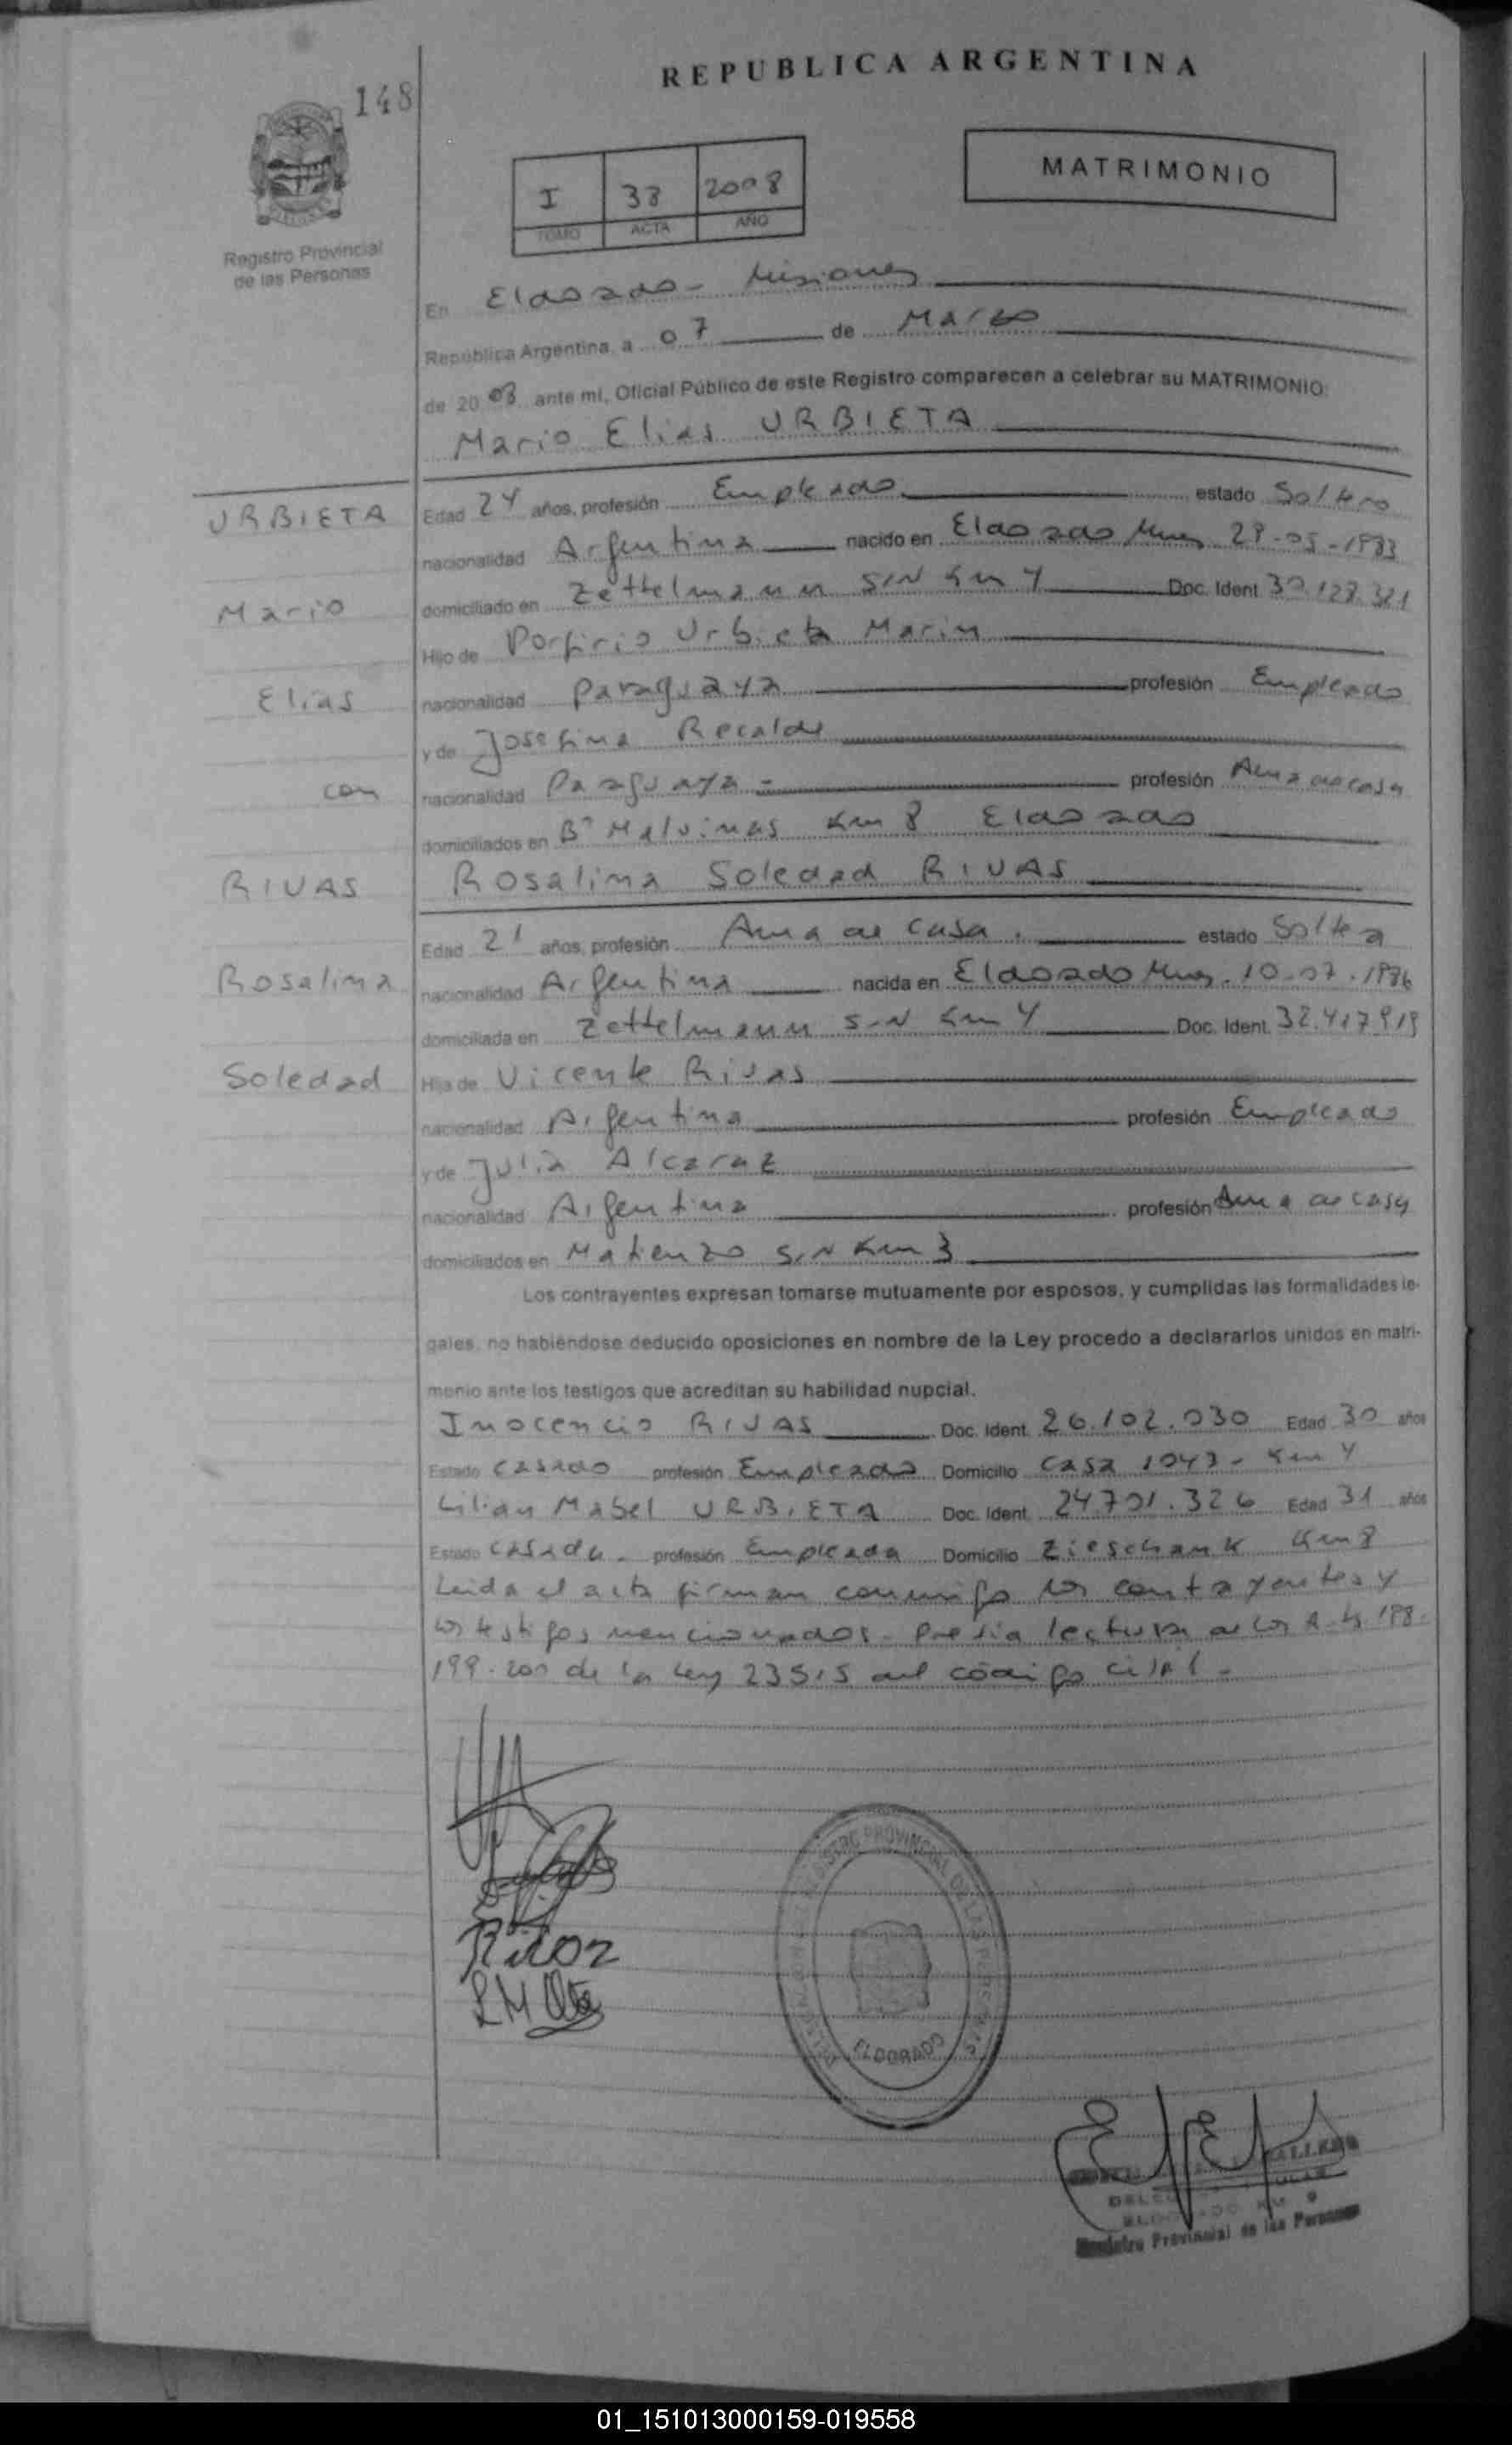 REPUBLICA ARGENTINA
148
MATRIMONIO
I 33 2008
TOMO ACTA AÑO
Registro Provincial
de las Personas
En Eldorado - Misiones
República Argentina, a 07 de Marzo
de 2008 ante mi, Oficial Público de este Registro comparecen a celebrar su MATRIMONIO:
Mario Elias URBIETA
URBIETA
Edad 24 años, profesión Empleado estado Soltero
nacionalidad Argentina nacido en Eldorado Mnes 28-05-1983
Mario
domiciliado en Zettelmann S/N Km 4 Doc. Ident.
Hijo de Porfirio Urbieta Marin
Elias
nacionalidad Paraguaya profesión Empleado
y de Josefina Recalde
con
nacionalidad Paraguaya - profesión Ama de casa
domiciliados en Bº Malvinas Km 8 Eldorado
RIVAS
Rosalina Soledad RIVAS
Edad 21 años, profesión Ama de casa. estado Soltera
Rosalina
nacionalidad Argentina nacida en Eldorado Mnes. 10.07.1986
domiciliada en Zettelmann S/N Km 4 Doc. Ident. 32.417.919
Soledad
Hija de Vicente Rivas
nacionalidad Argentina profesión Empleado
y de Julia Alcaraz
nacionalidad Argentina profesión Ama de casa
domiciliados en Matienzo S/N Km 3
Los contrayentes expresan tomarse mutuamente por esposos, y cumplidas las formalidades le-
gales, no habiéndose deducido oposiciones en nombre de la Ley procedo a declararlos unidos en matri-
monio ante los testigos que acreditan su habilidad nupcial.
Inocencio RIVAS Doc. Ident. 26.102.030 Edad 30 años
Estado casado profesión Empleado Domicilio Casa 1043 - Km 4
Lilian Mabel URBIETA Doc. Ident. 24.701.326 Edad 31 años
Estado casada - profesión Empleada Domicilio Zieschank Km 8
Leida el acta firman conmigo los contrayentes y
los testigos mencionados - Previa lectura de los Arts 198 -
199 - 200 de la Ley 23515 del código civil -
REGISTRO PROVINCIAL DE LAS PERSONAS
ELDORADO
ELDORADO KM 9
Registro Provincial de las Personas
01_151013000159-019558